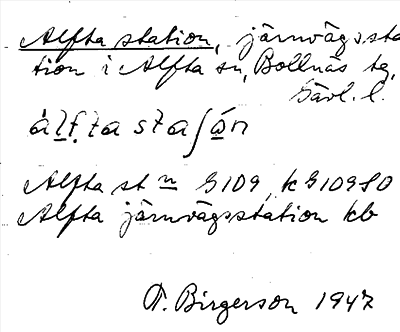 Alfta station, järnvägssta
tion i Alfta sn, Bollnäs tg,
Gävl. l.
Alfta st n G109, k G109 SO
Alfta järnvägsstation kb
T. Birgerson 1947